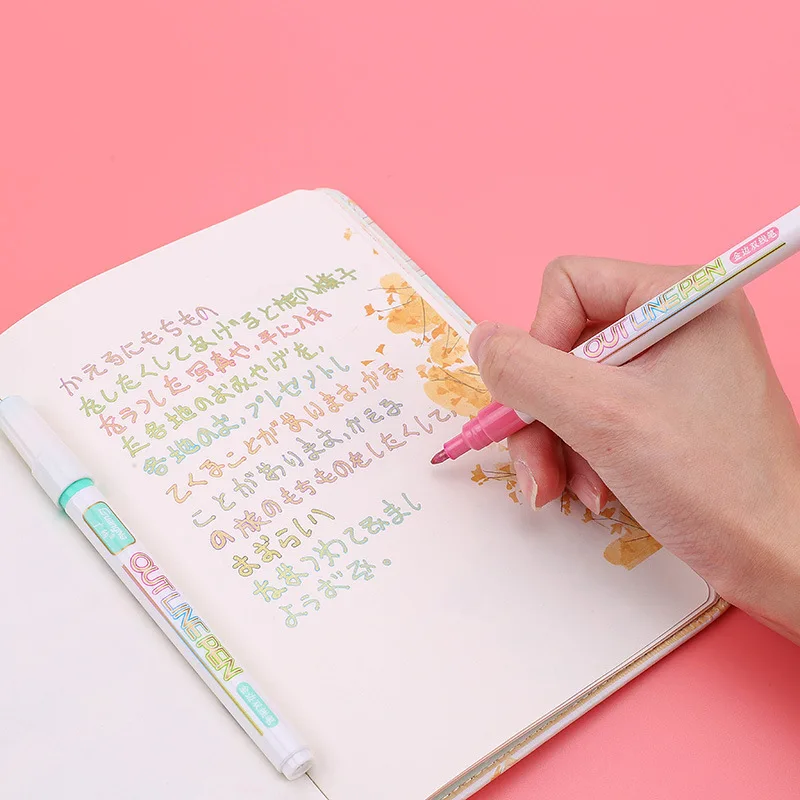 かえるにもちもの
をしたくしてあげると旅の様子
をうつした写真や、手に入れ
た各地のおみやげを、
各地のお、プレゼントし
てくることがありますかる
ことがありますかえる
の旅のもちものをしたくして
まあらしい
なまつわてみまし
ようおを。
OUT LINE PEN
金边双线笔
OUT LINE PEN
金边双线笔